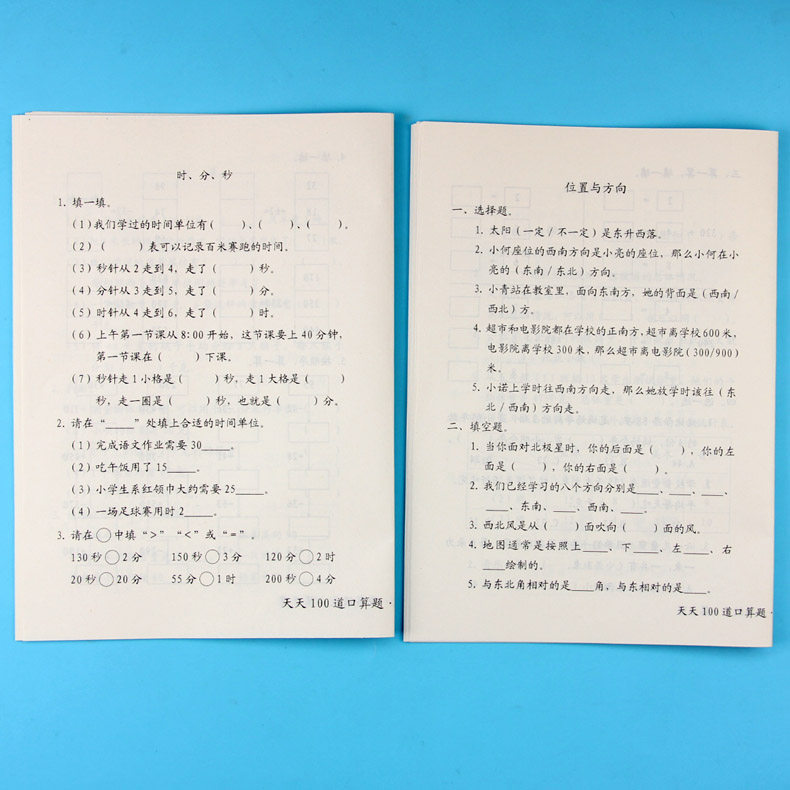 时、分、秒
1. 填一填。
(1)我们学过的时间单位有(　　)、(　　)、(　　)。
(2)(　　)表可以记录百米赛跑的时间。
(3)秒针从2走到4,走了(　　)秒。
(4)分针从3走到5,走了(　　)分。
(5)时针从4走到6,走了(　　)时。
(6)上午第一节课从8:00开始,这节课要上40分钟,
第一节课在(　　)下课。
(7)秒针走1小格是(　　)秒,走1大格是(　　)
秒,走一圈是(　　)秒,也就是(　　)分。
2. 请在“_____”处填上合适的时间单位。
(1)完成语文作业需要30_____。
(2)吃午饭用了15_____。
(3)小学生系红领巾大约需要25_____。
(4)一场足球赛用时2_____。
3. 请在○中填“>”“<”或“=”。
130秒○2分　150秒○3分　120分○2时
20秒○20分　55分○1时　200秒○4分
天天100道口算题·
位置与方向
一、选择题。
1. 太阳(一定/不一定)是东升西落。
2. 小何座位的西南方向是小亮的座位,那么小何在小
亮的(东南/东北)方向。
3. 小青站在教室里,面向东南方,她的背面是(西南/
西北)方。
4. 超市和电影院都在学校的正南方,超市离学校600米,
电影院离学校300米,那么超市离电影院(300/900)
米。
5. 小诺上学时往西南方向走,那么她放学时该往(东
北/西南)方向走。
二、填空题。
1. 当你面对北极星时,你的后面是(　　),你的左
面是(　　),你的右面是(　　)。
2. 我们已经学习的八个方向分别是____、____、____、
____、东南、____、西南、____。
3. 西北风是从(　　)面吹向(　　)面的风。
4. 地图通常是按照上____、下____、左____、右
____绘制的。
5. 与东北角相对的是____角,与东相对的是____。
天天100道口算题·